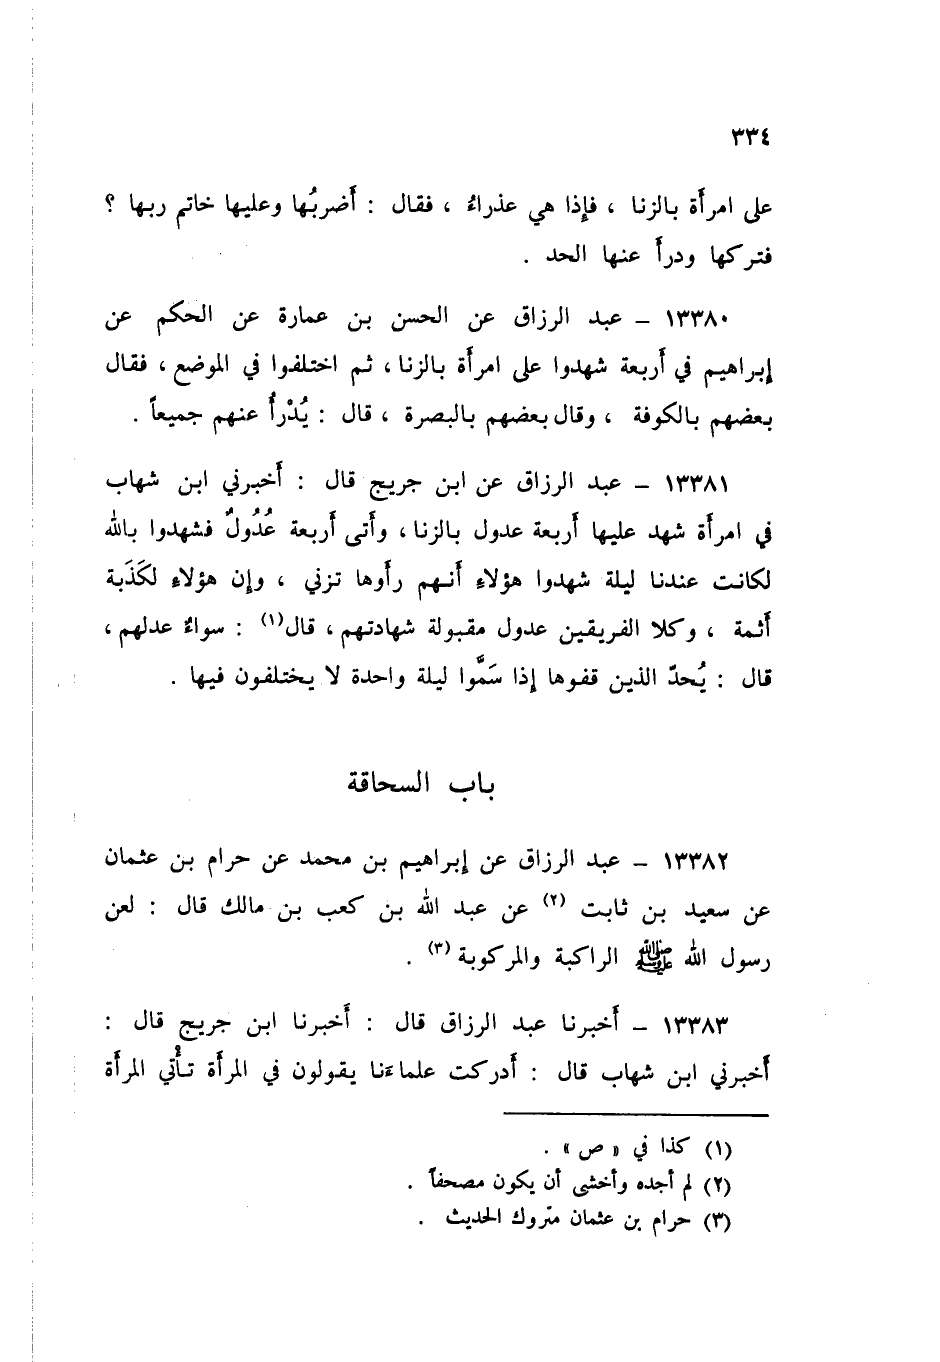 ٣٣٤
على امرأة بالزنا ، فإذا هي عذراءُ ، فقال : أَضربُها وعليها خاتم ربها ؟
فتركها ودرأَ عنها الحد .
١٣٣٨٠ – عبد الرزاق عن الحسن بن عمارة عن الحكم عن
إبراهيم في أَربعة شهدوا على امرأَة بالزنا ، ثم اختلفوا في الموضع ، فقال
بعضهم بالكوفة ، وقال بعضهم بالبصرة ، قال : يُدْرأُ عنهم جميعاً .
١٣٣٨١ – عبد الرزاق عن ابن جريج قال : أَخبرني ابن شهاب
في امرأَة شهد عليها أَربعة عدول بالزنا ، وأَتى أَربعة عُدُولٌ فشهدوا بالله
لكانت عندنا ليلة شهدوا هؤلاءِ أَنهم رأَوها تزني ، وإن هؤلاءِ لكَذَبة
أَثمة ، وكلا الفريقين عدول مقبولة شهادتهم ، قال(١) : سواءٌ عدلهم ،
قال : يُحدّ الذين قفوها إذا سَمَّوا ليلة واحدة لا يختلفون فيها .
باب السحاقة
١٣٣٨٢ – عبد الرزاق عن إبراهيم بن محمد عن حرام بن عثمان
عن سعيد بن ثابت (٢) عن عبد الله بن كعب بن مالك قال : لعن
رسول الله ﷺ الراكبة والمركوبة (٣) .
١٣٣٨٣ – أَخبرنا عبد الرزاق قال : أَخبرنا ابن جريج قال :
أَخبرني ابن شهاب قال : أَدركت علماءَنا يقولون في المرأَة تأْتي المرأَة
(١) كذا في « ص » .
(٢) لم أجده وأخشى أن يكون مصحفاً .
(٣) حرام بن عثمان متروك الحديث .